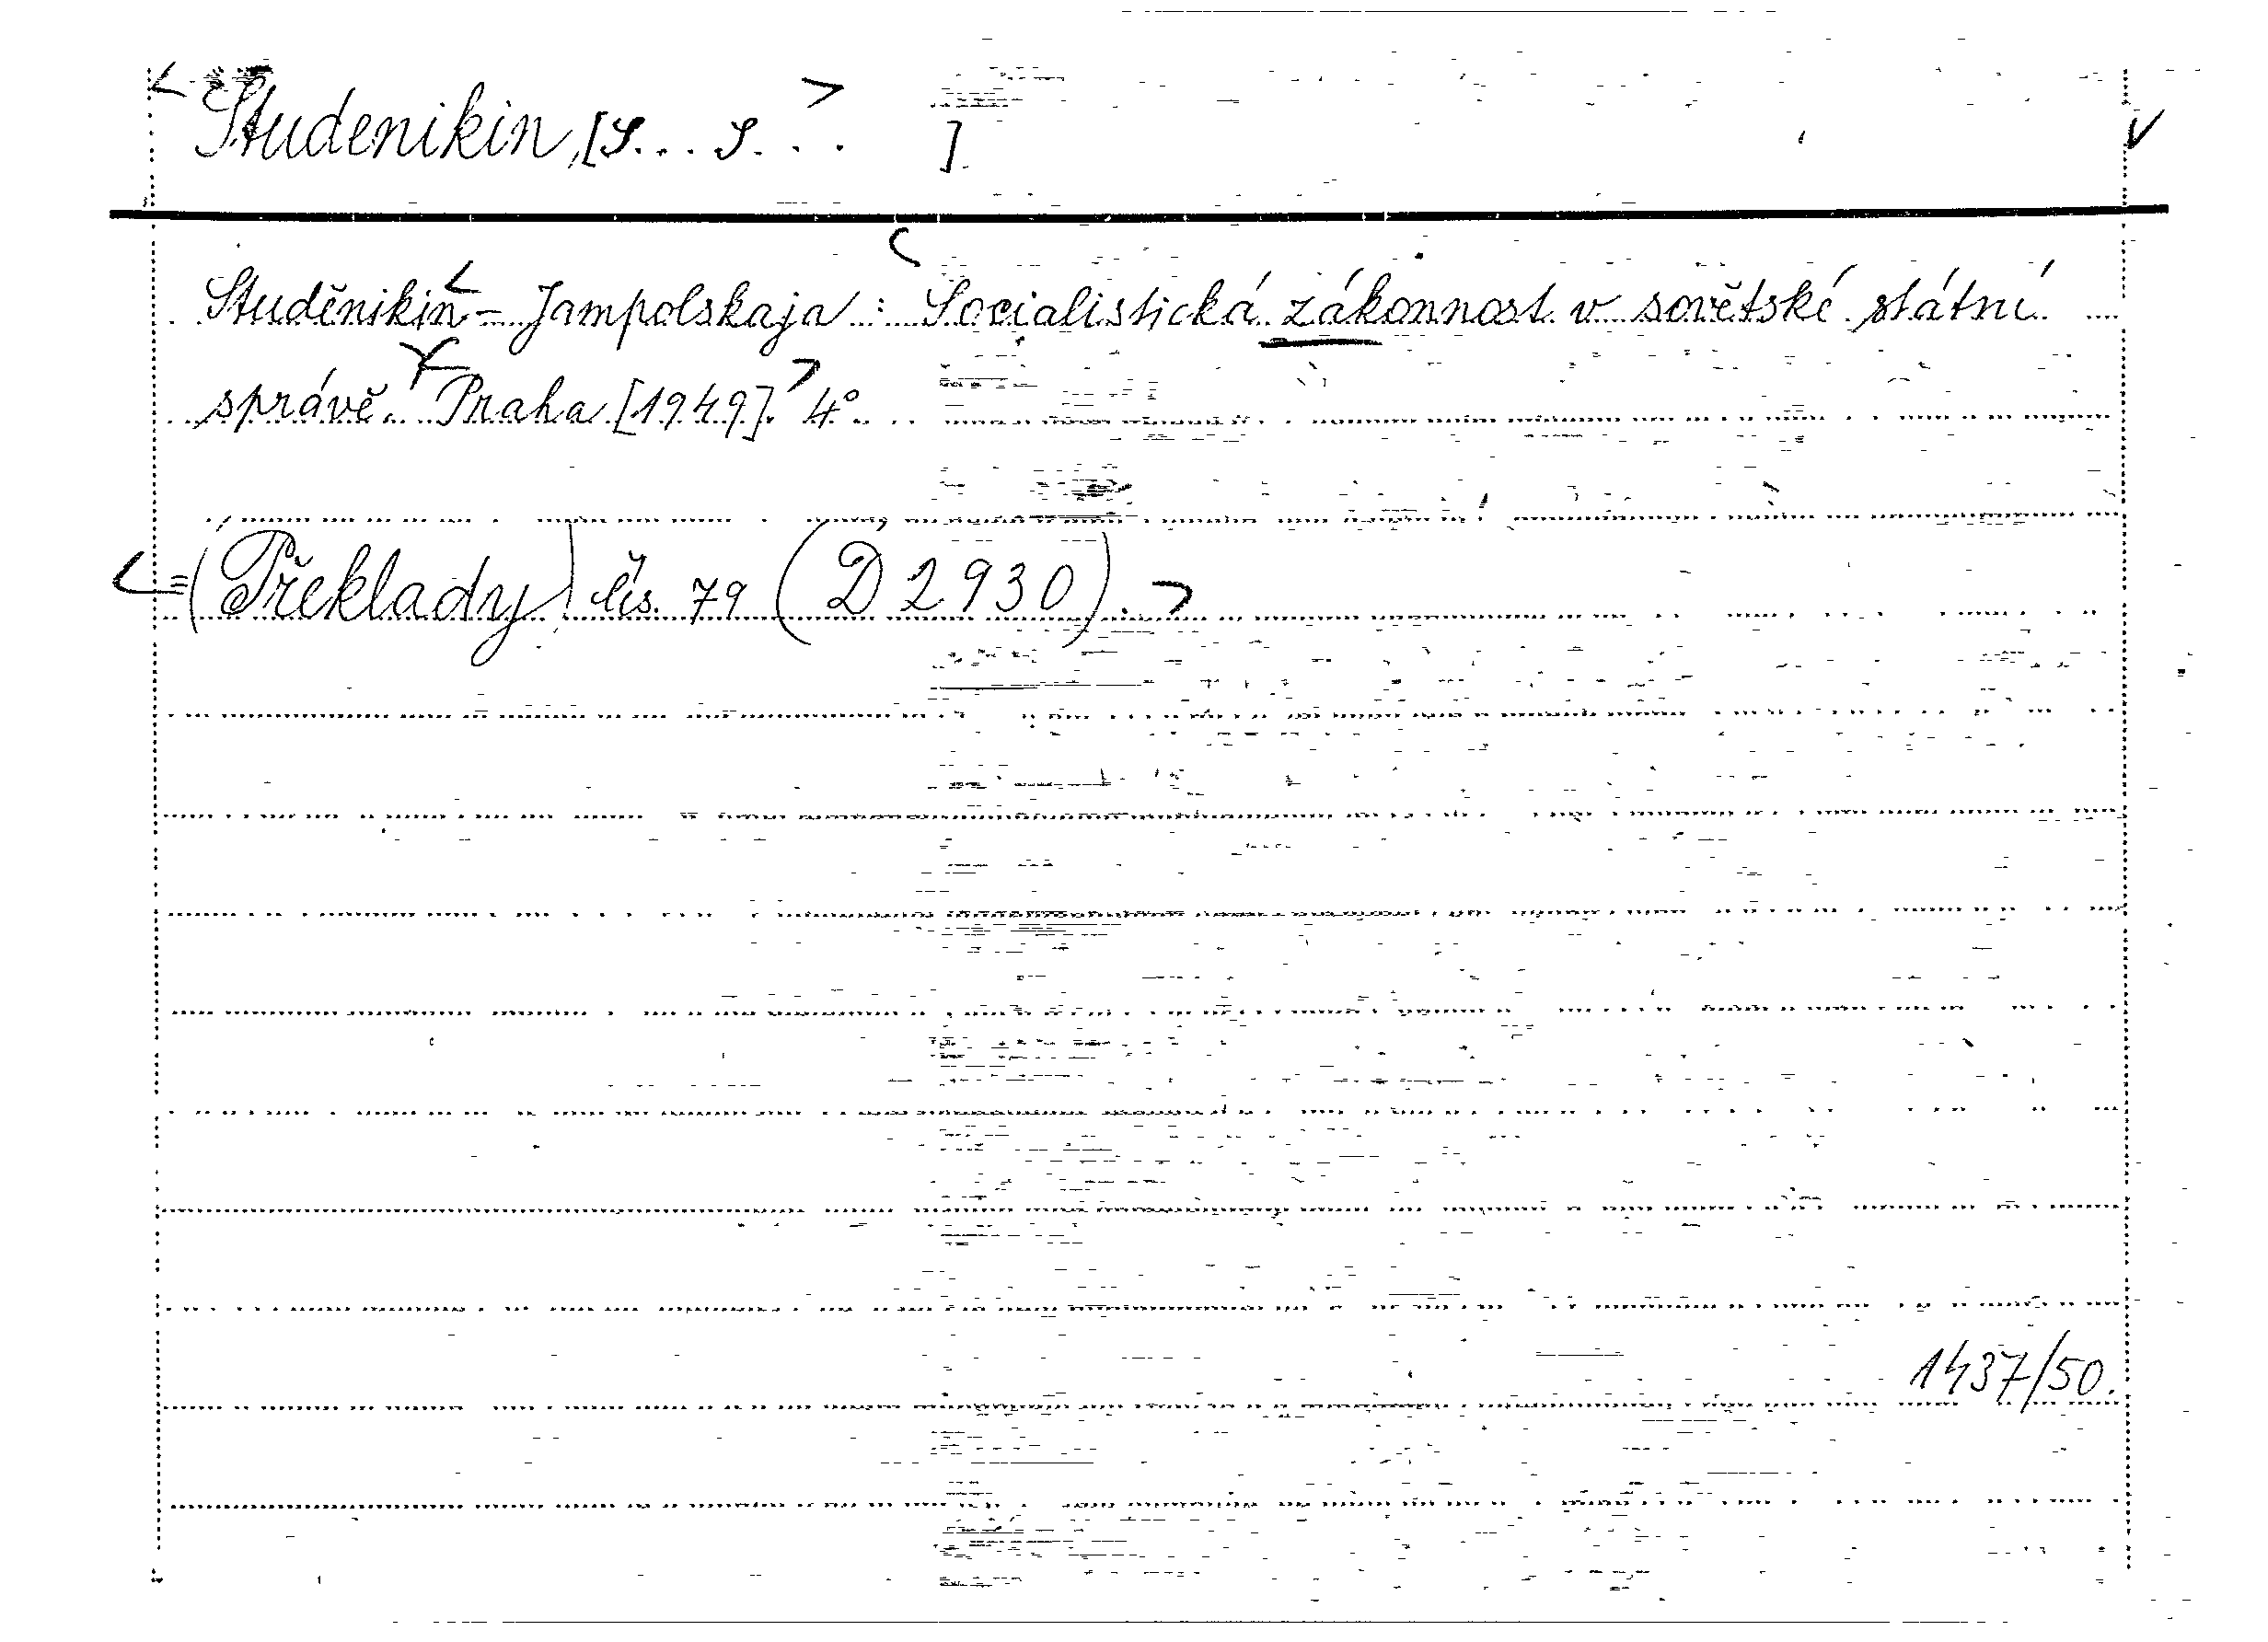 Studenikin, [S... S... ]
Studěnikin - Jampolskaja : Socialistická zákonnost v sovětské státní
správě. Praha [1949]. 4°.
= (Překlady) čís. 79 (D 2930).
1437/50.